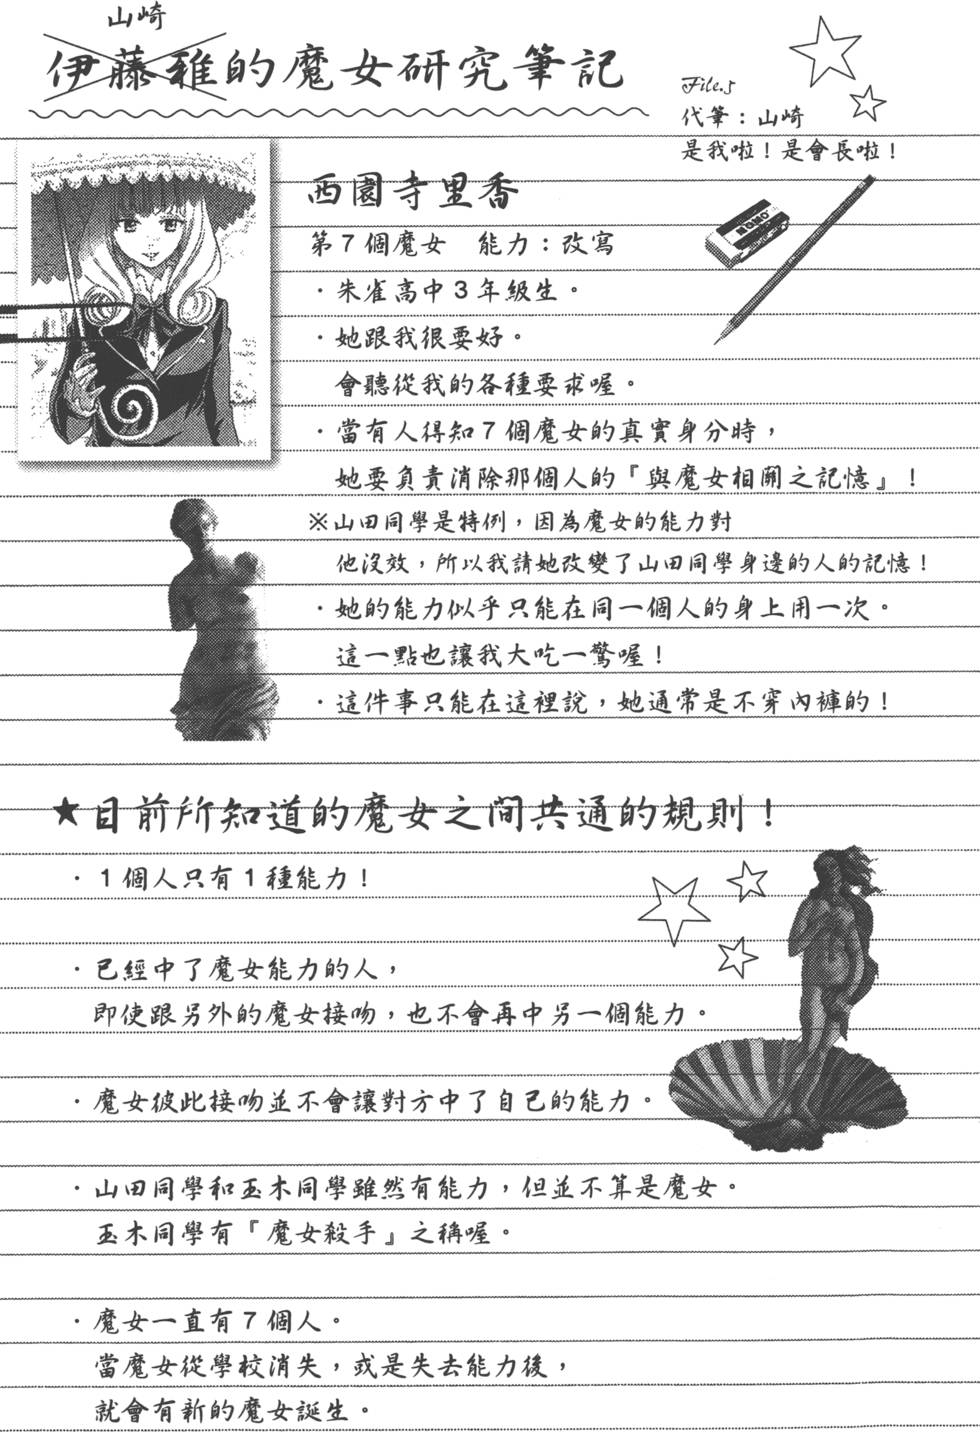 山崎
伊藤雅的魔女研究筆記
File.5
代筆：山崎
是我啦！是會長啦！
西園寺里香
第7個魔女　能力：改寫
・朱雀高中3年級生。
・她跟我很要好。
會聽從我的各種要求喔。
・當有人得知7個魔女的真實身分時，
她要負責消除那個人的『與魔女相關之記憶』！
※山田同學是特例，因為魔女的能力對
他沒效，所以我請她改變了山田同學身邊的人的記憶！
・她的能力似乎只能在同一個人的身上用一次。
這一點也讓我大吃一驚喔！
・這件事只能在這裡說，她通常是不穿內褲的！
★目前所知道的魔女之間共通的規則！
・1個人只有1種能力！
・已經中了魔女能力的人，
即使跟另外的魔女接吻，也不會再中另一個能力。
・魔女彼此接吻並不會讓對方中了自己的能力。
・山田同學和玉木同學雖然有能力，但並不算是魔女。
玉木同學有『魔女殺手』之稱喔。
・魔女一直有7個人。
當魔女從學校消失，或是失去能力後，
就會有新的魔女誕生。